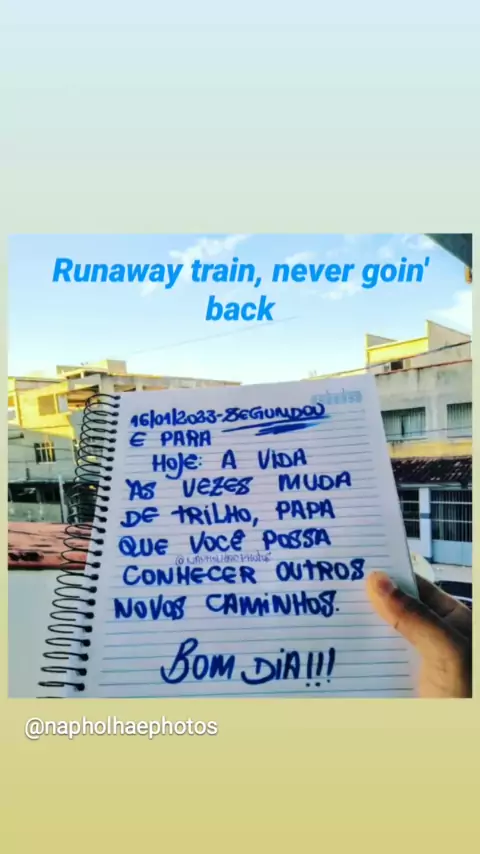 Runaway train, never goin'
back
16/01/2023-SEGUNDOU
E PARA
HOJE: A VIDA
AS VEZES MUDA
DE TRILHO, PAPA
QUE VOCÊ POSSA
CONHECER OUTROS
NOVOS CAMINHOS.
BOM DIA!!!
@napholhaephotos